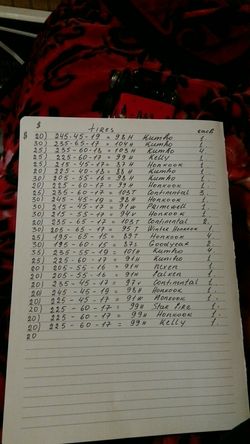 $ tires each
$ 20) 245-45-19 = 98H Kumho 1
30) 235-65-17 = 104H Kumho 1
25) 235-60-18 = 103H Kumho 4
25) 225-60-17 = 99H Kelly 1
25) 215-45-17 = 87H Honkook
20) 225-40-18 = 88H Kumho
30) 205-55-16 = 98H Kumho 1
20) 225-60-17 = 99H Honkook 1
25) 235-60-17 = 103T Continental
30) 245-45-19 = 98H Honkook 1
30) 215-45-17 = 91W Primewell 1
30) 215-55-17 = 94V Honkook 1
20) 235-65-17 = 103T Continental 1
30) 205-65-17 = 95T Winter Honkook
30) 195-65-15 = 89T Honkook 4
30) 195-60-15 = 87S Goodyear 2
25) 235-55-19 = 101H Kumho 4
25) 225-60-17 = 91H Kumho 1
20) 205-55-16 = 91H Falken 1
20) 205-55-16 = 91H Falken 1
20) 235-45-17 = 97V Continental 1
20) 245-45-19 = 98H Honkook 1
20) 225-55-17 = 91H Honkook 1
20) 225-60-17 = 99H Star fire 1
20) 225-60-17 = 99H Honkook 1
20) 225-60-17 = 99H Kelly 1
20